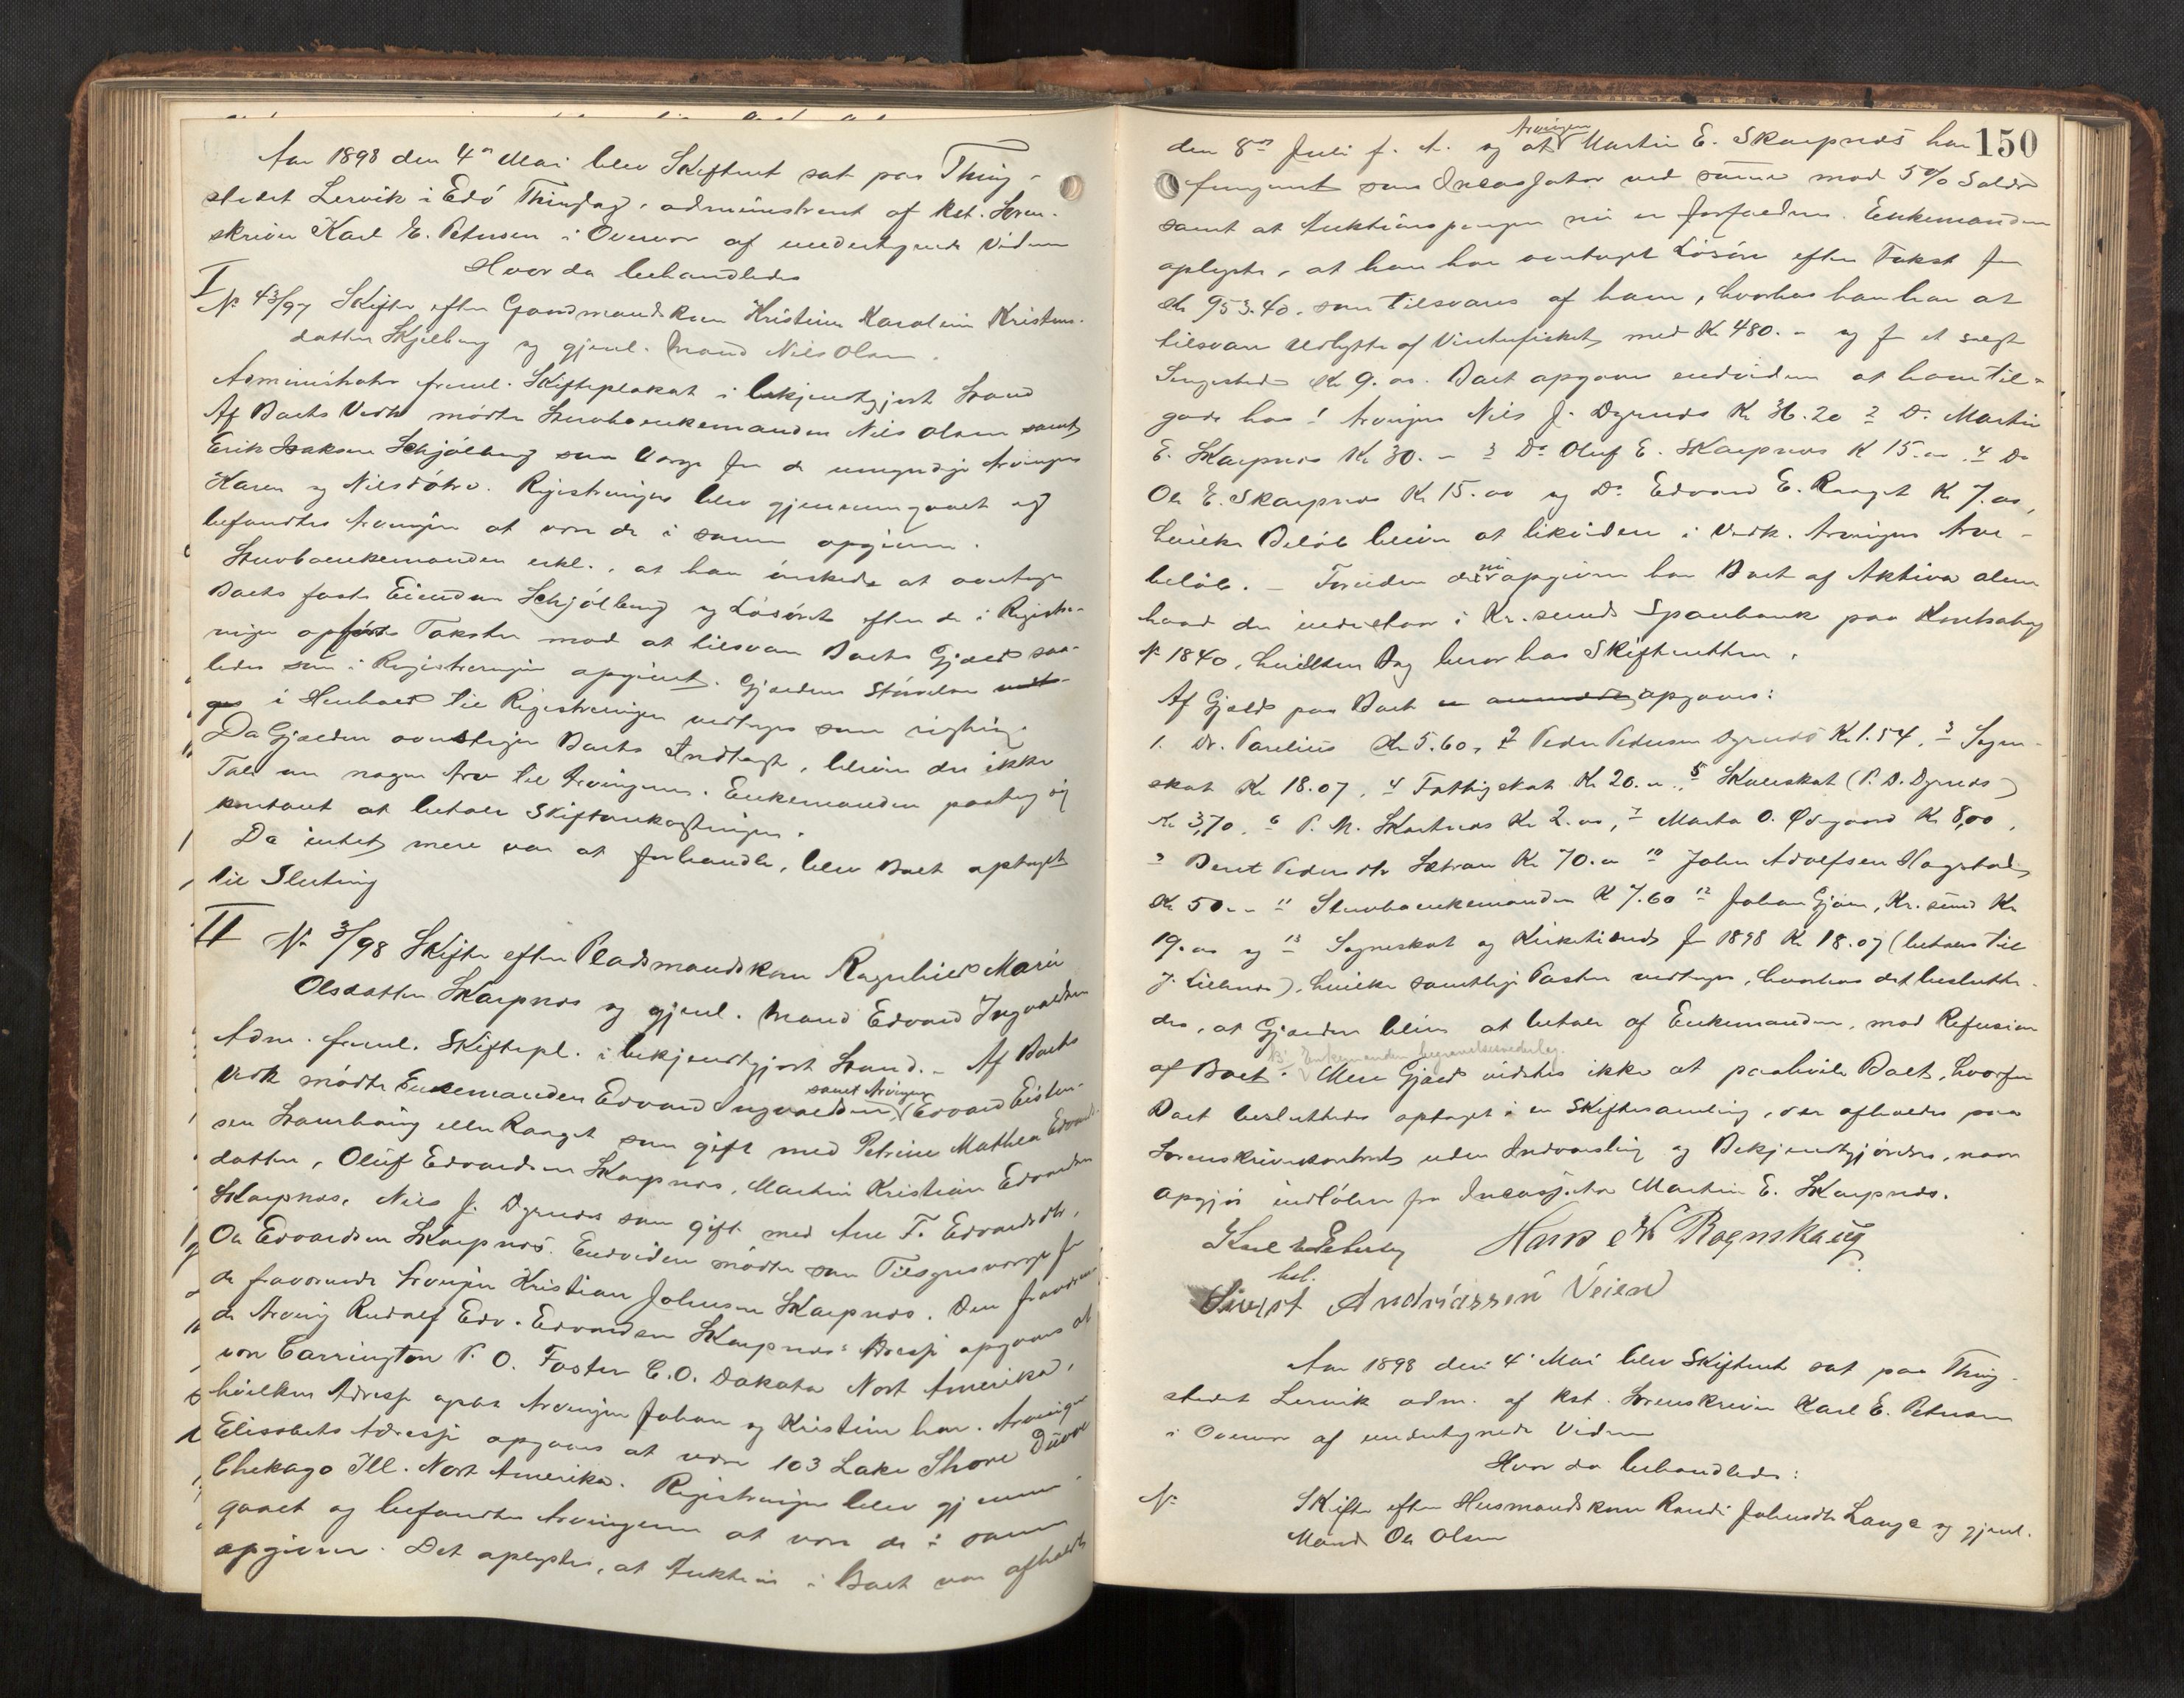 Aar 1898 den 4de Mai blev Skifteret sat paa Thing-
stedet Lervik i Edö Thinglag, administreret af kst. Soren-
skriver Karl E. Petersen i Overvær af undertegnede Vidner
Hvor da behandledes
I
No 43/97 Skifte efter Gaardmandskone Kristine Karoline Kristens-
datter Skjelberg og gjenl. Mand Nils Olsen.
Administrator freml. Skifteplakat i bekjendtgjort Stand
Af Boets Vedk mödte Stervboenkemanden Nils Olsen samt
Erik Isaksen Schjölberg som Værge for de umyndige Arvinger
Karen og Nilsdötre. Registreringen blev gjennemgaaet og
befandtes Arvingerne at være de i samme opgivne.
Stervboenkemanden erkl., at han önskede at overtage
Boets faste Eiendom Schjölberg og Lösöret efter de i Registre-
ringen opförte Takster mod at tilsvare Boets Gjæld saa-
ledes som i Registreringen opgivet. Gjældens Störrelse vedt-
ges i Henhold til Registreringen vedtages som rigtig.
Da Gjælden overstiger Boets Indtægt, bliver der ikke
Tale om nogen Arv til Arvingerne. Enkemanden paatog sig
kontant at betale Skifteomkostninger.
Da intet mere var at forhandle, blev Boet optaget
til Slutning
II No 3/98 Skifte efter Pladsmandskone Ragnhild Marie
Olsdatter Skarpnes og gjenl. Mand Edvard Ingvaldsen
Adm. freml. Skiftepl. i bekjendtgjort Stand. - Af Boets
Vedk mödte Enkemanden Edvard Ingvaldsen samt Arvingerne Edvard Eisten-
sen eller Ranget som gift med Petrine Mathea Edvards-
datter, Oluf Edvardsen Skarpnes, Martin Kristian Edvardsen
Skarpnes, Nils J. Dyrnes som gift med Ane F. Edvardsdtr,
Ole Edvardsen Skarpnes. Endvidere mödte som Tilsynsværge for
de fraværende Arvinger Kristian Johnsen Skarpnes. Den fraværen-
de Arving Rudolf Edv. Edvardsen Skarpnes' Adresse opgaves at
være Carrington P. O. Foster C.O. Dakota Nort Amerika,
hvilken Adresse ogsaa Arvingen Johan og Kristine har. Arvingen
Elisabets Adresse opgaves at være 103 Lake Shore Düvve
Chekago Ill. Nort Amerika. Registreringen blev gjennem-
gaaet og befandtes Arvingerne at være de i samme
opgivne. Det oplystes, at Auktion i Boet var afholdt
150
den 8de Juli f. A. og at Arvingen Martin E. Skarpnes har
fungeret som Incassator ved samme mod 5% Salær
samt at Auktionspengene nu er forfaldne. Enkemanden
oplyste, at han har overtaget Lösöre efter Takst for
Kr 953.40. som tilsvares af ham, hvorhos han har at
tilsvare Udbytte af Vinterfisket, med Kr 480. - og for et solgt
Sengested Kr 9.00. Boet opgaves endvidere at have til-
gode hos 1 Arvingen Nils J. Dyrnes Kr 36.20 2 Do Martin
E. Skarpnes Kr 30. - 3 Do Oluf E. Skarpnes K 15.00. 4 Do
Ole E. Skarpnes Kr 15.00 og Do Edvard E. Ranget Kr 7.00,
hvilke Belöb bliver at likvidere i vedk. Arvingers Arve-
belöb. - Foruden de nu opgivne har Boet af Aktiva alene
hvad der indestaar i Kr.sunds Sparebank paa Kontrabog
No 1840, hvilken Bog beror hos Skifteretten.
Af Gjæld paa Boet er anmeldt opgaves:
1. Dr. Parelius Kr 5.60, 2 Peder Pedersen Dyrnes Kr 1.54. 3 Sogne-
skat Kr 18.07, 4 Fattigskat Kr 20.-, 5 Skoleskat (P. D. Dyrnes)
Kr 3,70. 6 P. M. Skartnes Kr 2.00, 7 Marta O. Ödegaard Kr 8,00,
9 Beret Pedersdtr Sætran Kr 70.- 10 John Adolfsen Hagstad
Kr 50.- 11 Stervboenkemanden K 7.60 12 Johan Gjöen, Kr.sund Kr
19.00 og 13 Sogneskat og Kirketiende for 1898 Kr 18.07 (betales til
J. Lillenes), hvilke samtlige Poster vedtages, hvorhos det beslutte-
des, at Gjælden bliver at betale af Enkemanden, mod Refusion
af Boet. Enkemanden begravelsesvederlag. Mere Gjæld vidstes ikke at paahvile Boet, hvorfor
Boet besluttedes optaget i en Skiftesamling, der afholdes paa
Sorenskriverkontoret uden Indvarsling og Bekjendtgjörelse, naar
Opgjör indlöber fra Incassator Martin E. Skarpnes.
Karl E Petersen Hans N Rognskaug
kst.
Sivert Andriassen Veien
Aar 1898 den 4' Mai blev Skifteret sat paa Thing-
stedet Lervik adm. af kst. Sorenskriver Karl E. Petersen
i Overvær af undertegnede Vidner
Hvor da behandledes:
No Skifte efter Husmandskone Randi Johnsdtr Lange og gjenl.
Mand Ole Olsen